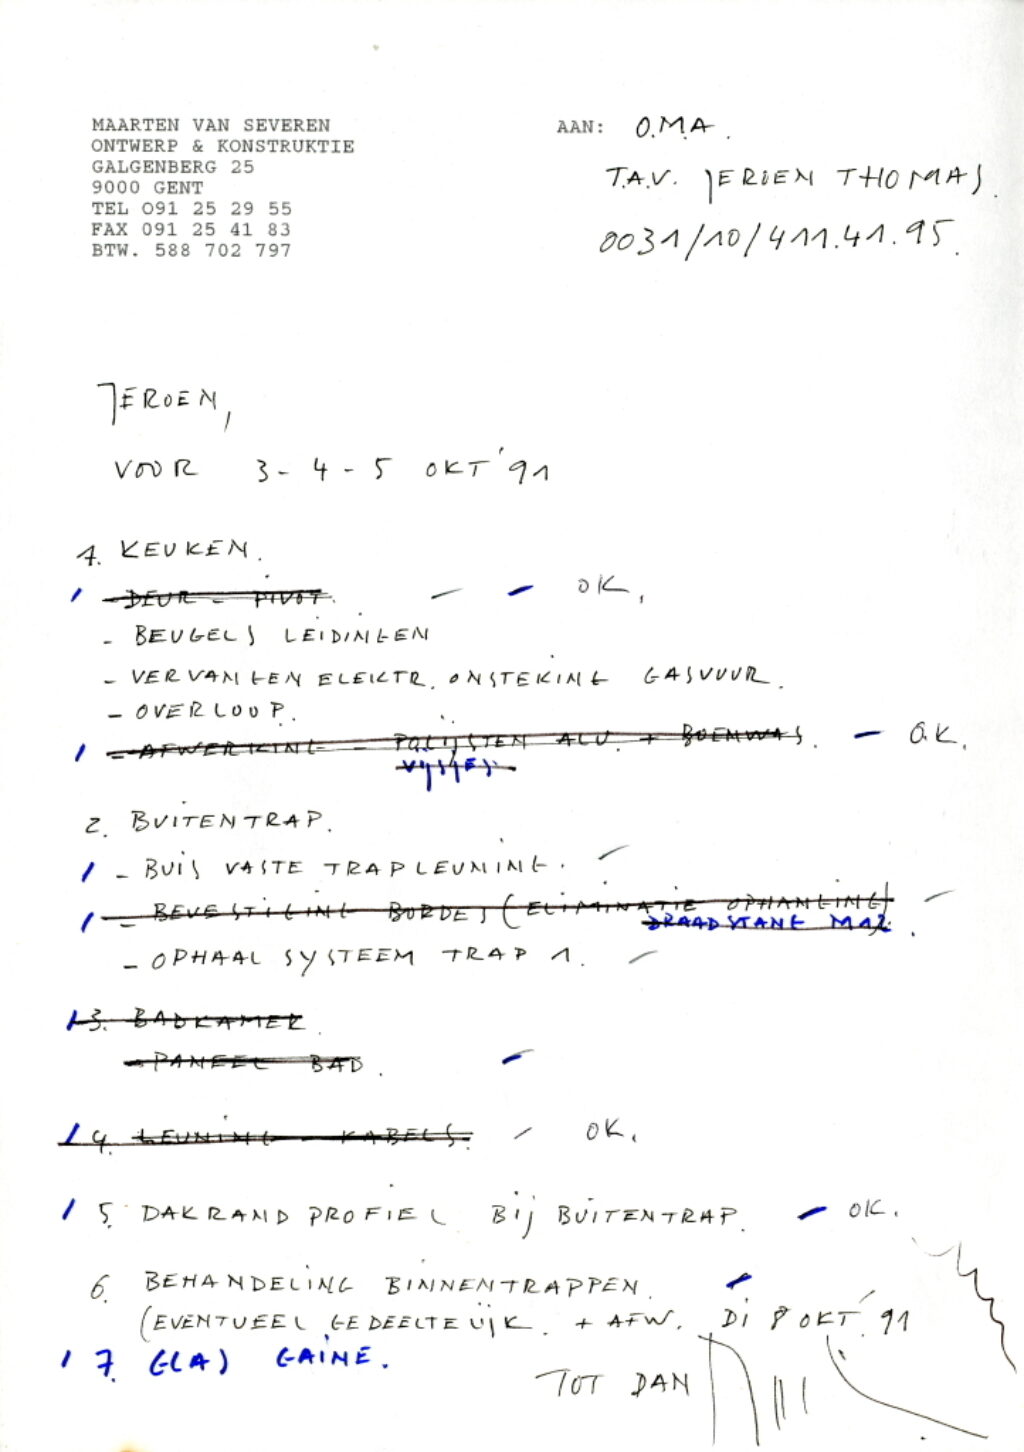 MAARTEN VAN SEVEREN
ONTWERP & KONSTRUKTIE
GALGENBERG 25
9000 GENT
TEL 091 25 29 55
FAX 091 25 41 83
BTW. 588 702 797
AAN: O.M.A.
T.A.V. JEROEN THOMAS.
0031/10/411.41.95.
JEROEN,
VOOR 3-4-5 OKT '91
1. KEUKEN.
- DEUR - PIVOT. - - OK.
- BEUGELS LEIDINGEN
- VERVANGEN ELEKTR. ONSTEKING GASVUUR.
- OVERLOOP.
- AFWERKING - POLIJSTEN ALU. + BOENWAS. - O.K.
VIJSJES
2. BUITENTRAP.
- BUIS VASTE TRAPLEUNING.
- BEVESTIGING BORDES (ELIMINATIE OPHANGING)
DRAADSTANG M12.
- OPHAALSYSTEEM TRAP 1.
3. BADKAMER.
- PANEEL BAD.
4. LEUNING - KABELS. - OK.
5. DAKRAND PROFIEL BIJ BUITENTRAP. - OK.
6. BEHANDELING BINNENTRAPPEN.
(EVENTUEEL GEDEELTELIJK. + AFW. DI 8 OKT. '91
7. G(A) GAINE.
TOT DAN